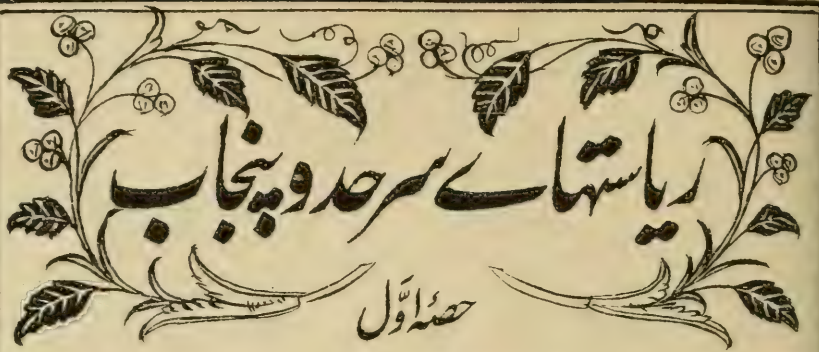 ریاستہاے سرحد و پنجاب
حصۂ اوّل